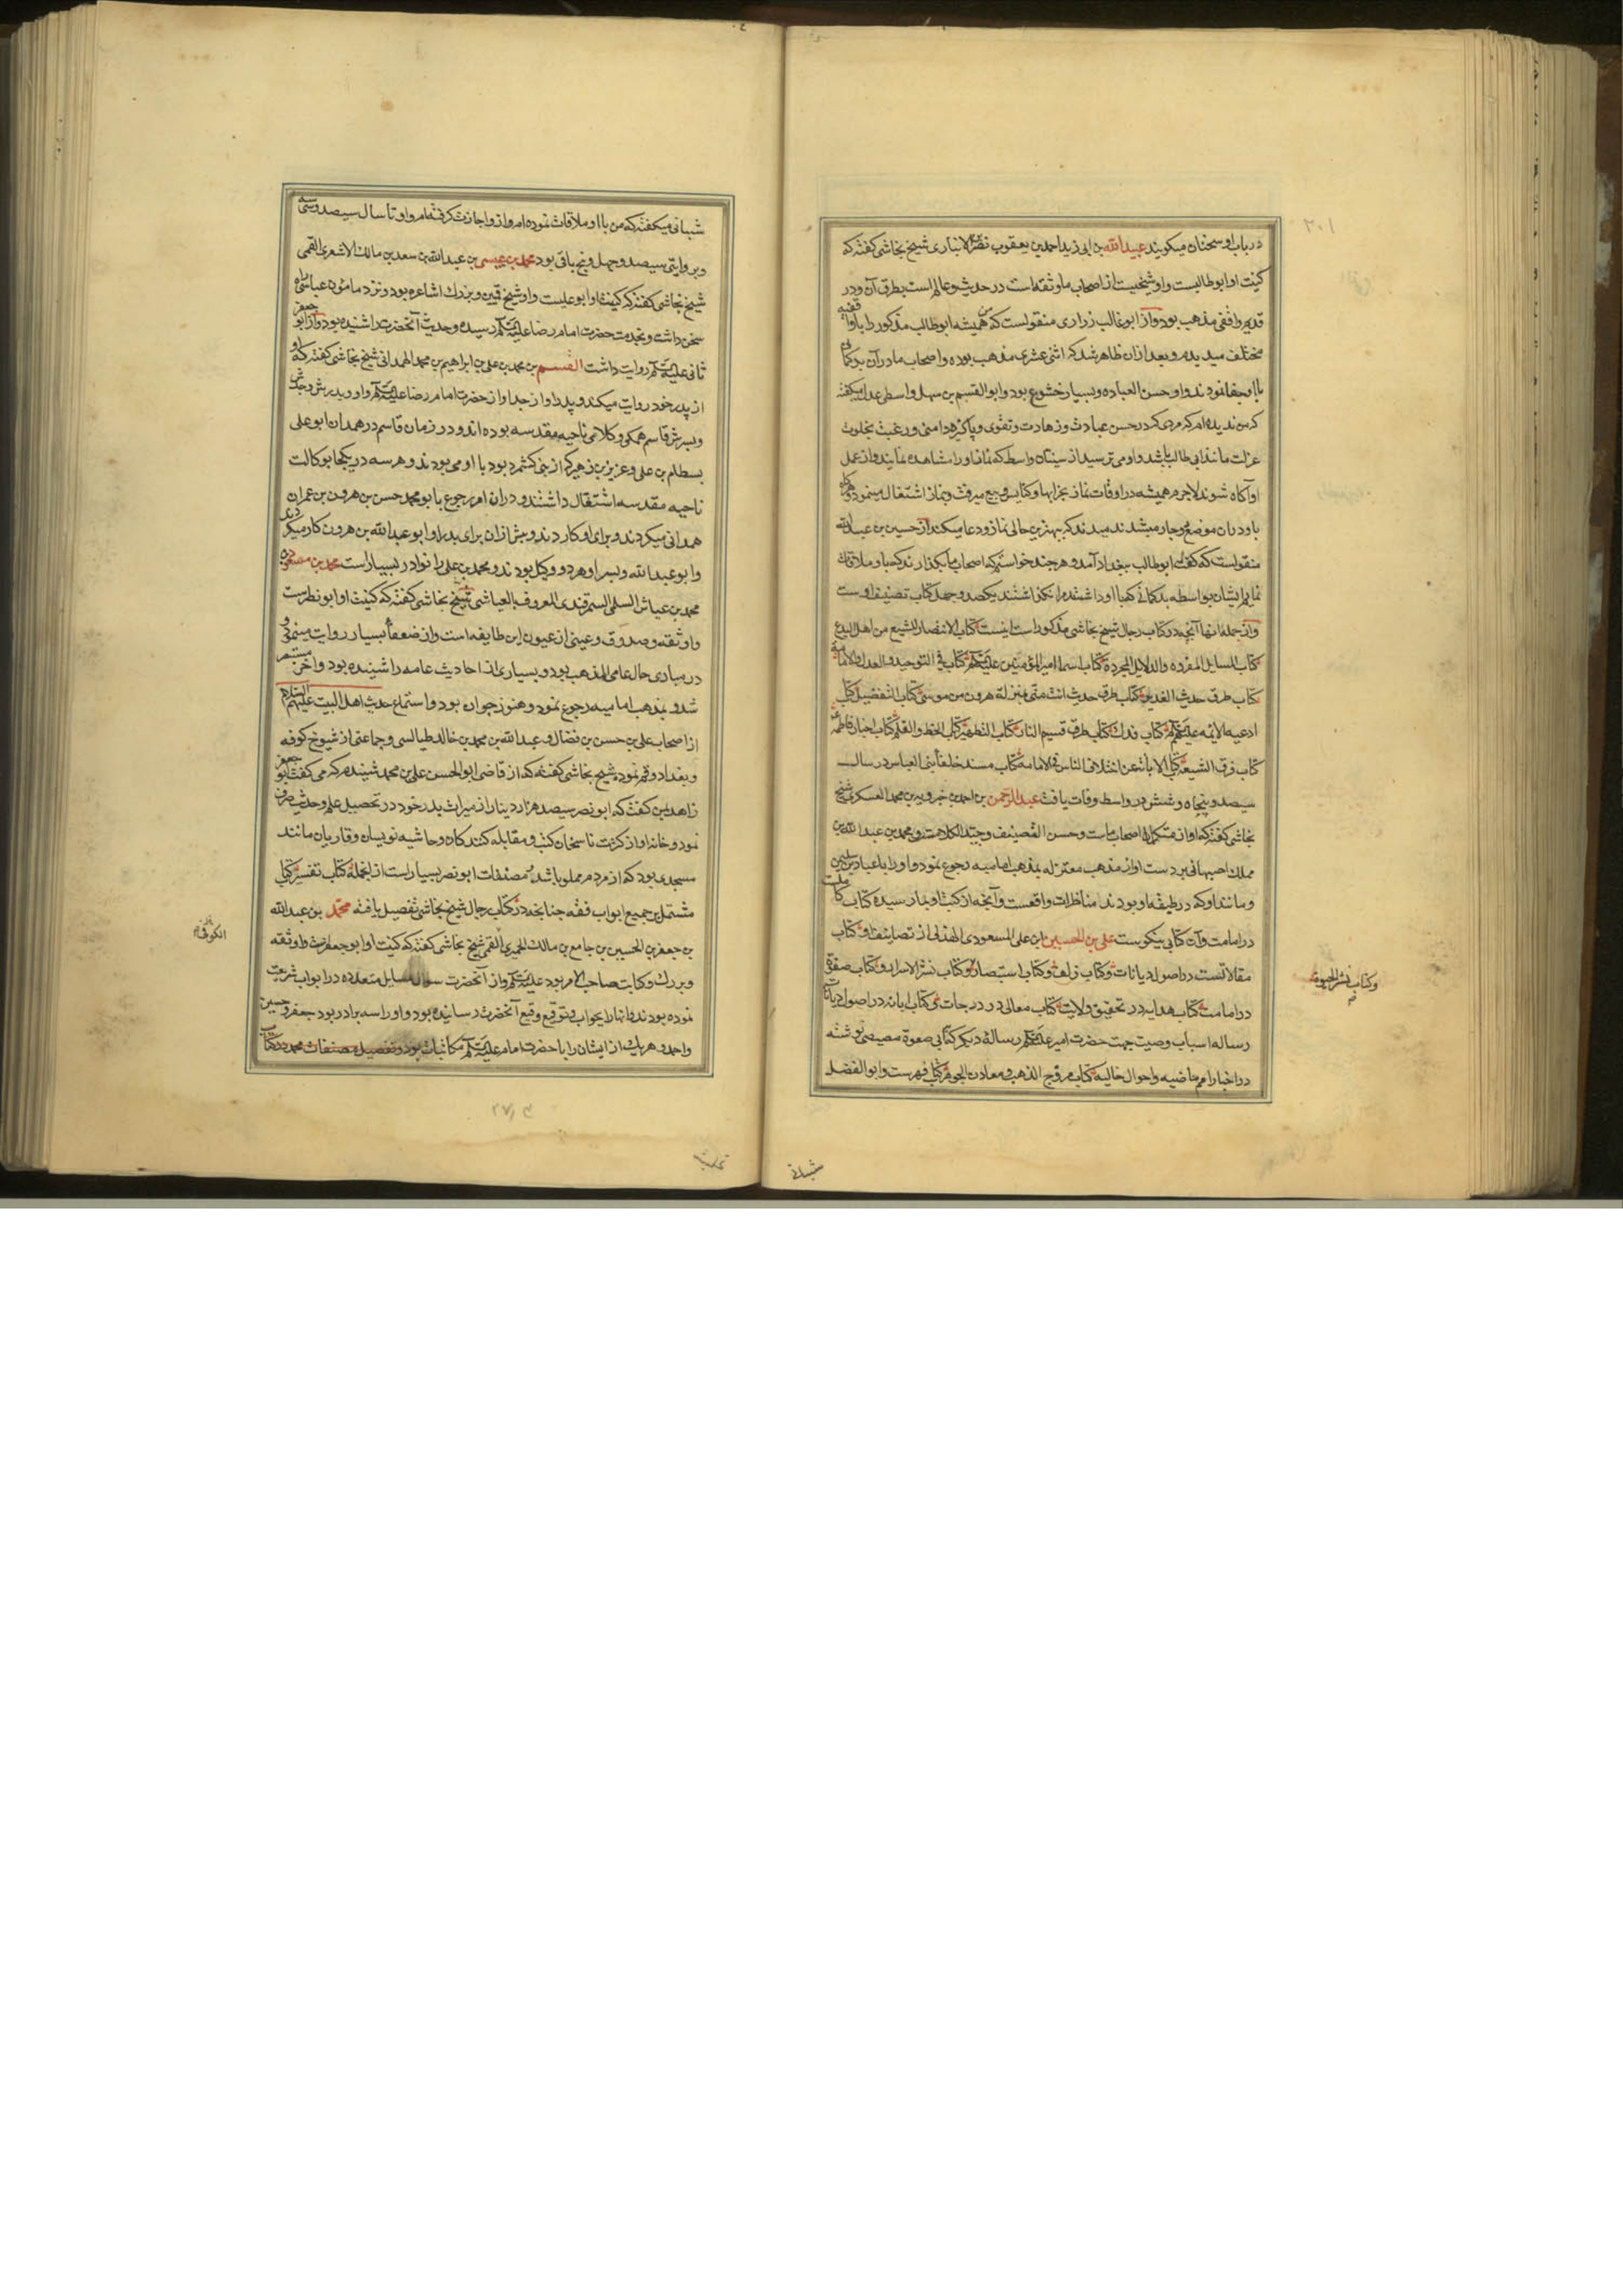 در باب او سخنان میگویند عبیدالله بن ابی زید احمد بن یعقوب نصر الانباری شیخ نجاشی گفته که
کنیت او ابوطالبست و او شیخیست از اصحاب ما و ثقه است در حدیث و عالم است بطرق آن و در
قدیم واقفی مذهب بود و از ابوغالب زراری منقولست که من همیشه ابوطالب مذکور را با واقفیه
مختلف میدیدم و بعد از ان ظاهر شد که اثنی عشری مذهب بوده و اصحاب ما در آن بد گمانی
با او جفا نمودند و او حسن العباده و بسیار خشوع بود و ابوالقسم بن سهل واسطی عدل میگفته
که من ندیده ام که مردی که در حسن عبادت و زهادت و تقوی و پاکیزه دامنی و رغبت بخلوت
عزلت مانند ابی طالب باشد و او می ترسید از سنیان واسط که نماز او را مشاهده نمایند و از عمل
او آگاه شوند لاجرم همیشه در اوقات نماز بخرابها و کنایس و بیع میرفت و بنماز اشتغال مینمود و هرگاه
باو در ان موضع دوچار میشدند میدیدند که بهترین حالی نماز و دعا میکند از حسین بن عبدالله
منقولست که گفت ابوطالب ببغداد آمد و هر چند خواستم که اصحاب ما بگذارند که باو ملاقات
نمایم ایشان بواسطه بد گمانی که با او داشتند مرا نگذاشتند یکصد و چهل کتاب تصنیف اوست
و از جمله انها آنچه در کتاب رجال شیخ نجاشی مذکور است اینست کتاب الانتصار للشیع من اهل البدع
کتاب المسایل المفرده والدلایل المجردة کتاب اسما امیر المؤمنین علیه السلام کتاب فی التوحید والعدل والامامة
کتاب طرق حدیث الغدیر کتاب طرق حدیث انت منی بمنزلة هرون من موسی کتاب التفضیل کتاب
ادعیه الائمه علیهم السلام کتاب فدک کتاب طرق قسیم النار کتاب التطهیر کتاب الخط والقلم کتاب اخبار فاطمه
کتاب فرق الشیعة کتاب الابانه عن اختلاف الناس فی الامامة کتاب مسند خلفاء بنی العباس در سال
سیصد و پنجاه و شش در واسط وفات یافت عبدالرحمن بن احمد بن خبرویه بن محمد العسکری شیخ
نجاشی گفته که او از متکلمان اصحاب ماست و حسن التصنیف و جید الکلام است و محمد بن عبدالله بن
مملک اصبهانی بر دست او از مذهب معتزله بمذهب امامیه رجوع نمود و او را با عباد بن سلیمن
و مانند او که در طبقه او بودند مناظرات واقعست و آنچه از کتب او بما رسیده کتاب کاملست
در امامت و آن کتابی نیکوست علی بن الحسین بن علی المسعودی الهذلی از تصانیف او کتاب
مقالاتست در اصول دیانات و کتاب زلف و کتاب استبصار و کتاب نشر الاسرار و کتاب صفوة
در امامت کتاب هدایه در تحقیق ولایت کتاب معالی در درجات و کتاب ابانه در اصول دیانات
رساله اسباب وصیت جهت حضرت امیر علیه السلام رسالة دیگر کتابی صعوة مصیصی نوشته
در اخبار امم ماضیه و احوال خالیه کتاب مروج الذهب و معادن الجوهر کتاب فهرست و ابوالفضل
شیبانی
شیبانی میگفته که من با او ملاقات نموده ام و از و اجازت گرفته ام و او تا سال سیصد و سی و سه
و بروایتی سیصد و چهل و پنج باقی بود محمد بن عیسی بن عبدالله بن سعد بن مالک الاشعری القمی
شیخ نجاشی گفته که کنیت او ابوعلیست و او شیخ قمین و بزرک اشاعره بود و نزد مامون عباسی راه
سخن داشت و بخدمت حضرت امام رضا علیه السلام رسیده و حدیث آنحضرت را شنیده بود و از ابو جعفر
ثانی علیه السلام روایت داشت القسم بن محمد بن علی بن ابراهیم بن محمد الهمدانی شیخ نجاشی گفته که او
از پدر خود روایت میکند و پدر او از جد او از حضرت امام رضا علیه السلام و او و پدرش و جدش
و پسرش قاسم همگی وکلای ناحیه مقدسه بوده اند و در زمان قاسم در همدان ابوعلی
بسطام بن علی و عزیز بن زهیر که از بنی کشمرد بود با او می بودند و هر سه در یکجا بوکالت
ناحیه مقدسه اشتغال داشتند و در ان امر رجوع بابو محمد حسن بن هرون بن عمران
همدانی میکردند و برای او کار کردند و پیش از ان برای پدر او ابوعبدالله بن هرون کار میکردند
و ابوعبدالله و پسر او هر دو وکیل بودند و محمد بن علی را نوادر بسیار است محمد بن مسعود
محمد بن عیاش السلمی السمرقندی المعروف بالعیاشی شیخ نجاشی گفته که کنیت او ابونصرست
و او ثقه و صدوق و عینی از عیون این طایفه است و از ضعفا بسیار روایت مینمود و
در مبادی حال عامی المذهب بود و بسیاری از احادیث عامه را شنیده بود و آخر مستبصر
شد و بمذهب امامیه رجوع نمود و هنوز جوان بود و استماع حدیث اهل البیت علیهم السلام
از اصحاب علی بن حسن بن فضال و عبدالله بن محمد بن خالد طیالسی و جماعتی از شیوخ کوفه
و بغداد و قم نموده شیخ نجاشی گفته که از قاضی ابوالحسن علی بن محمد شنیدم که می گفت ابو جعفر
زاهد بمن گفت که ابونصر سیصد هزار دینار از میراث پدر خود در تحصیل علم و حدیث صرف
نمود و خانه او از کثرت ناسخان کتب و مقابله کنندگان و حاشیه نویسان و قاریان مانند
مسجدی بود که از مردم مملو باشد و مصنفات ابونصر بسیار است از انجمله کتاب تفسیر کتاب
مشتمل بر جمیع ابواب فقه چنانچه در کتاب رجال شیخ نجاشی تفصیل یافته محمد بن عبدالله
بن جعفر بن الحسین بن جامع بن مالک الحمیری القمی شیخ نجاشی گفته که کنیت او ابوجعفرست و او ثقه
و بزرک و کاتب صاحب الامر بود علیه السلام و از آنحضرت سوال مسایل متعدده در ابواب شریعت
نموده بودند و انها را بجواب و توقیع وقیع آنحضرت رسانیده بود و او را سه برادر بود جعفر و حسین
و احمد و هر یک از ایشان را با حضرت امام علیه السلام مکاتبات بود و تفصیل مصنفات محمد در کتاب